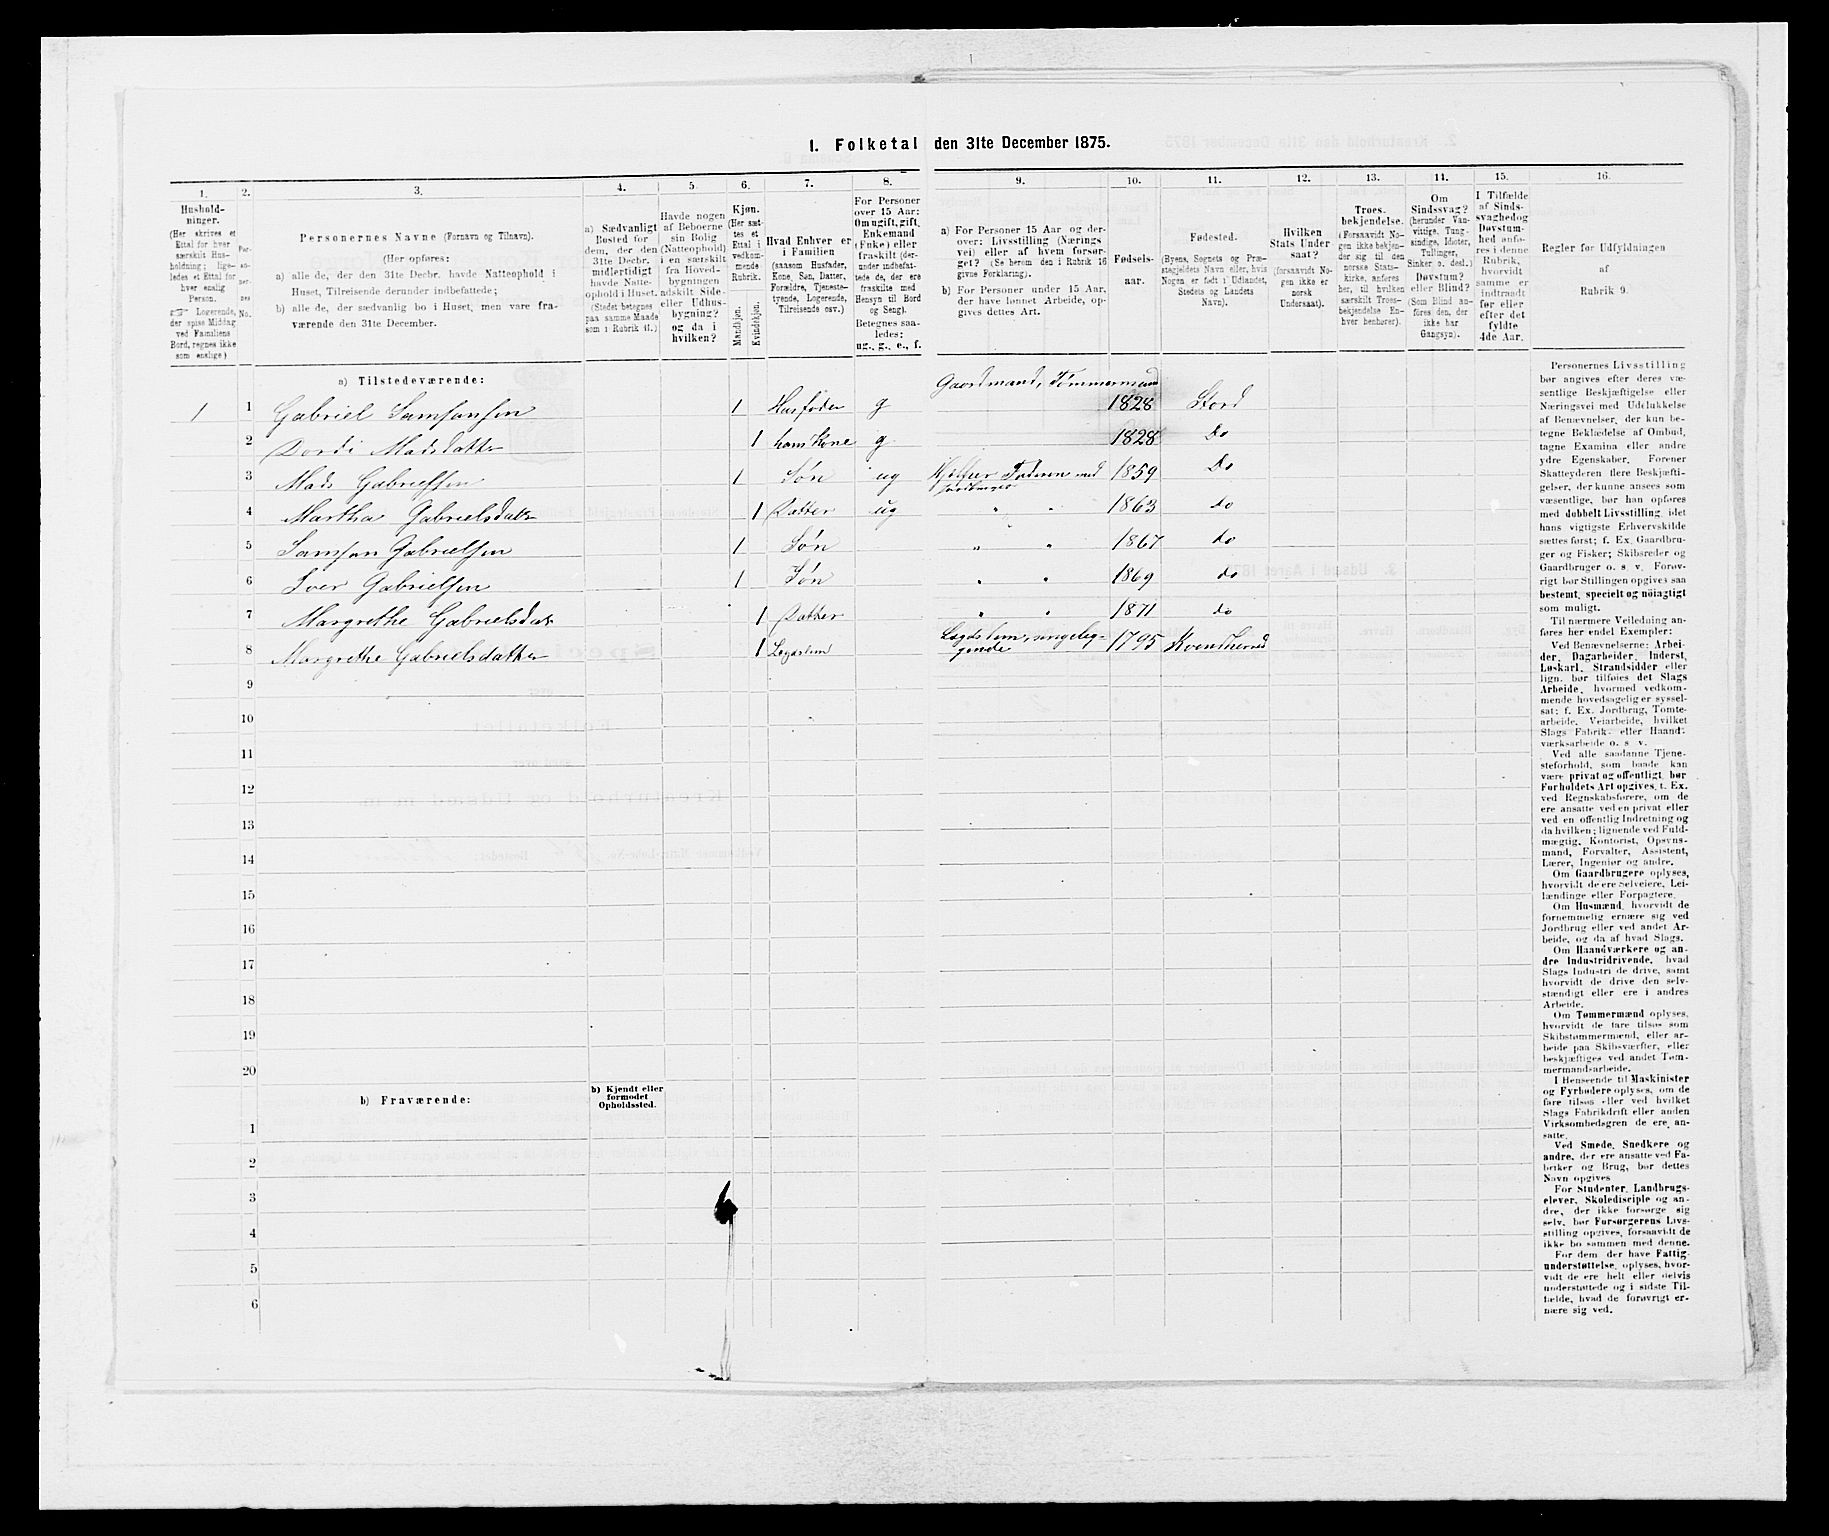 1. Folketal den 31te December 1875.
1. 2. 3. 4. 5. 6. 7. 8. 9. 10. 11. 12. 13. 14. 15. 16.
Hushold-
ninger.
(Her skrives et
Ettal for hver
særskilt Hus-
holdning; lige-
ledes et Ettal for
hver enslig
Person.
Logerende,
der spise Middag
ved Familiens
Bord, regnes ikke
som enslige)
Per-
so-
ner-
nes
No.
Personernes Navne (Fornavn og Tilnavn).
(Her opføres:
a) alle de, der den 31te Decbr. havde Natteophold i
Huset, Tilreisende derunder indbefattede;
b) alle de, der sædvanlig bo i Huset, men vare fra-
værende den 31te December.
a) Sædvanligt
Bosted for
dem, der den
31te Decbr.
midlertidigt
havde Natte-
ophold i Huset.
(Stedet betegnes
paa samme Maade
som i Rubrik 11.)
Havde nogen
af Beboerne
sin Bolig
(Natteophold)
i en særskilt
fra Hoved-
bygningen
adskilt Side-
eller Udhus-
bygning?
og da i
hvilken?
Kjøn.
(Her sæt-
tes et
Ettal i
vedkom-
mende
Rubrik.
Mandkjøn.
Kvindekjøn.
Hvad Enhver er
i Familien
(saasom Husfader,
Kone, Søn, Datter,
Forældre, Tjeneste-
tyende, Logerende,
Tilreisende osv.)
For Personer
over 15 Aar:
Om ugift, gift,
Enkemand
(Enke) eller
fraskilt (der-
under indbefat-
tede de, der ere
fraskilte med
Hensyn til Bord
og Seng).
Betegnes saa-
ledes:
ug., g., e., f.
a) For Personer 15 Aar og der-
over: Livsstilling (Nærings
vei) eller af hvem forsør-
get? (Se herom den i Rubrik 16
givne Forklaring).
b) For Personer under 15 Aar,
der have lønnet Arbeide, op-
gives dettes Art.
Fødsels-
aar.
Fødested.
(Byens, Sognets og Præ-
stegjeldets Navn eller, hvis
Nogen er født i Udlandet,
Stedets og Landets
Navn).
Hvilken
Stats Under
saat?
(forsaavidt No-
gen ikke er
norsk
Undersaat).
Troes-
bekjendelse.
(Forsaavidt No-
gen ikke bekjen-
der sig til den
norske Stats-
kirke, anføres
her, til hvilken
særskilt Troes-
bekjendelse En-
hver henhører).
Om
Sindssvag?
(herunder Van-
vittige, Tung-
sindige, Idioter,
Tullinger,
Sinker o. desl.)
Døvstum?
eller Blind?
(Som Blind an-
føres den, der
ikke har
Gangsyn).
I Tilfælde
af Sinds-
svaghed og
Døvstum-
hed anfø-
res i denne
Rubrik,
hvorvidt
samme er
indtraadt
før eller
efter det
fyldte
4de Aar.
Regler for Udfyldningen
af
Rubrik 9.
a) Tilstedeværende:
Gaardmand, Tømmermand
1 1 Gabriel Samsonsen 1 Husfader g 1828 Stord
2 Dordi Madsdatter 1 hans Kone g 1828 Do
3 Mads Gabrielsen 1 Søn ug Hjelper Faderen med 1859 Do
Jordbruget
4 Martha Gabrielsdatr 1 Datter ug " " 1863 do
5 Samson Gabrielsen 1 Søn " " 1867 do
6 Iver Gabrielsen 1 Søn " " 1869 do
7 Margrethe Gabrielsdatr 1 Datter " " 1871 do
8 Margrethe Gabrielsdatter 1 Lægdslem Lægdslem, sengelig- 1795 Kvindherred
gende
9
10
11
12
13
14
15
16
17
18
19
20
b) Fraværende:
b) Kjendt eller
formodet
Opholdssted.
1
2
3
4
5
6
Personernes Livsstilling
bør angives efter deres væ-
sentlige Beskjæftigelse eller
Næringsvei med Udelukkelse
af Benævnelser, der kun be-
tegne Beklædelse af Ombud,
tagne Examina eller andre
ydre Egenskaber. Forener
Skatteyderen flere Beskjæfti-
gelser, der kunne ansees som
væsentlige, bør han opføres
med dobbelt Livsstilling, idet
hans vigtigste Erhvervskilde
sættes først; f. Ex. Gaardbru-
ger og Fisker; Skibsreder og
Gaardbruger o. s. v. Forøv-
rigt bør Stillingen opgives saa
bestemt, specielt og nøiagtigt
som muligt.
Til nærmere Veiledning an-
føres her endel Exempler:
Ved Benævnelserne: Arbei-
der, Dagarbeider, Inderst,
Løskarl, Strandsidder eller
lign. bør tilføies det Slags
Arbeide, hvormed vedkom-
mende hovedsagelig er syssel-
sat; f. Ex. Jordbrug, Tomte-
arbeide, Veiarbeide, hvilket
Slags Fabrik- eller Haand-
værksarbeide o. s. v.
Ved alle saadanne Tjene-
steforhold, som baade kan
være privat og offentligt, bør
Forholdets Art opgives, t. Ex.
ved Regnskabsførere, om de
ere ansatte ved en privat eller
ved en offentlig Indretning og
da hvilken; lignende ved Fuld-
mægtig, Kontorist, Opsyns-
mand, Forvalter, Assistent,
Lærer, Ingeniør og andre.
Om Gaardbrugere oplyses,
hvorvidt de ere Selveiere, Lei-
lændinge eller Forpagtere.
Om Husmænd, hvorvidt de
fornemmelig ernære sig ved
Jordbrug eller ved andet Ar-
beide, og da af hvad Slags.
Om Haandværkere og an-
dre Industridrivende, hvad
Slags Industri de drive, samt
hvorvidt de drive den selv-
stændigt eller ere i andres
Arbeide.
Om Tømmermænd oplyses,
hvorvidt de fare tilsøs som
Skibstømmermænd, eller ar-
beide paa Skibsværfter, eller
beskjæftiges ved andet Tøm-
mermandsarbeide.
I Henseende til Maskinister
og Fyrbødere oplyses, om de
fare tilsøs eller ved hvilket
Slags Fabrikdrift eller anden
Virksomhedsgren de ere an-
satte.
Ved Smede, Snedkere og
andre, der ere ansatte ved Fa-
briker og Brug, bør dettes
Navn opgives
For Studenter, Landbrugs-
elever, Skoledisciple og an-
dre, der ikke forsørge sig
selv, bør Forsørgerens Livs-
stilling opgives, forsaavidt de
ikke bo sammen med denne.
For dem der have Fattig-
understøttelse, oplyses, hvor-
vidt de ere helt eller delvis
understøttede og i sidste Til-
fælde, hvad de forøvrigt er-
nære sig ved.